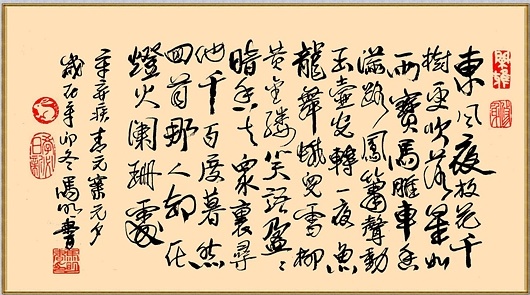 東風夜放花千
樹更吹落星如
雨寶馬雕車香
滿路鳳簫聲動
玉壺光轉一夜魚
龍舞蛾兒雪柳
黃金縷笑語盈〻
暗香去衆裏尋
他千百度暮然
回首那人卻在
燈火闌珊處
辛弃疾青玉案元夕
歲在辛卯冬馮書